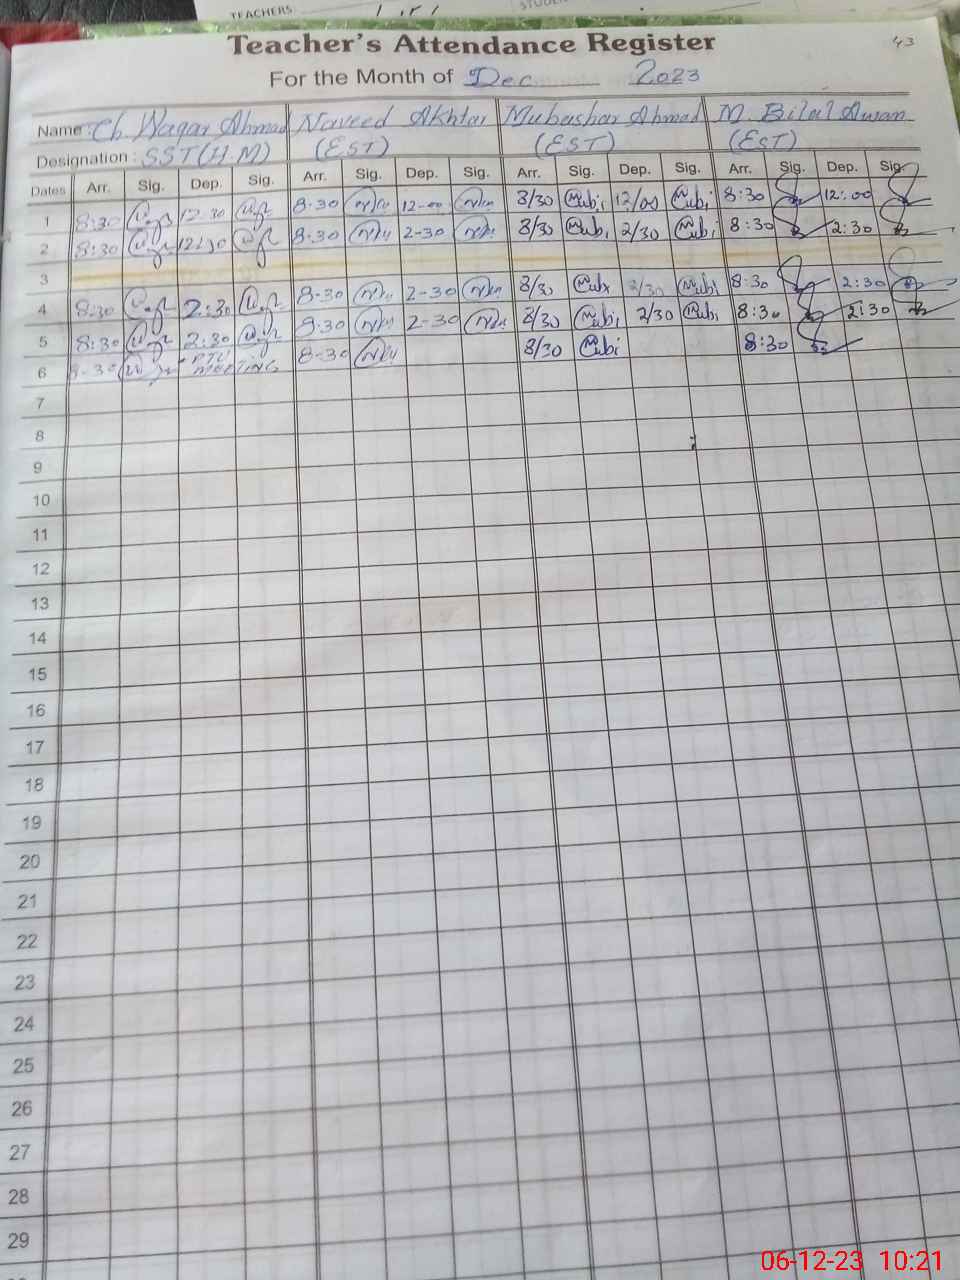 TEACHERS
STUDE
43
Teacher's Attendance Register
For the Month of Dec 2023
Name : Ch. Waqar Ahmad Naveed Akhtar Mubashar Ahmad M. Bilal Awan
Designation : SST(H.M) (EST) (EST) (EST)
Dates Arr. Sig. Dep. Sig. Arr. Sig. Dep. Sig. Arr. Sig. Dep. Sig. Arr. Sig. Dep. Sig.
1 8:30 12:30 8-30 12-00 8/30 Mubi 12/00 Mubi 8:30 12:00
2 8:30 12:30 8-30 2-30 8/30 Mubi 2/30 Mubi 8:30 2:30
3
4 8:30 2:30 8-30 2-30 8/30 Mubi 2/30 Mubi 8:30 2:30
5 8:30 2:30 8-30 2-30 8/30 Mubi 2/30 Mubi 8:30 2:30
6 8-30 PTC MEETING 8-30 8/30 Mubi 8:30
7
8
9
10
11
12
13
14
15
16
17
18
19
20
21
22
23
24
25
26
27
28
29
06-12-23 10:21